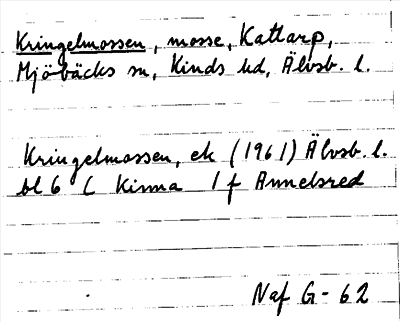 Kringelmossen, mosse, Kattarp,
Mjöbäcks sn, Kinds hd, Älvsb. l.
Kringelmossen, ek (1961) Älvsb. l.
bl 6 C Kinna 1 f Annelsred
Naf G-62